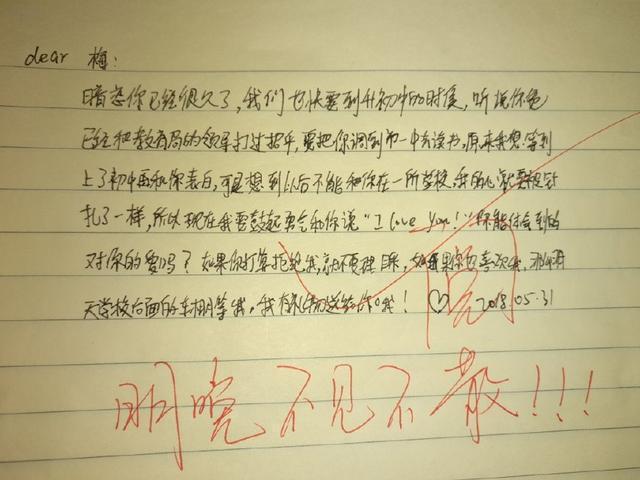 dear 梅:
暗恋你已经很久了,我们也快要到升初中的时候,听说你爸
已经和教育局的领导打过招乎,要把你调到市一中去读书,原来我想等到
上了初中再和你表白,可是想到以后不能和你在一所学校,我的心就要被针
扎了一样,所以现在我要鼓起勇气和你说“I love you!”你能体会到的
对你的爱吗?如果你打算拒绝我,就不要理睬,如果你也喜欢我,明
天学校后面的车棚等我,我有礼物送给你哦! ♡ 2018.05.31
阅
明晚不见不散!!!